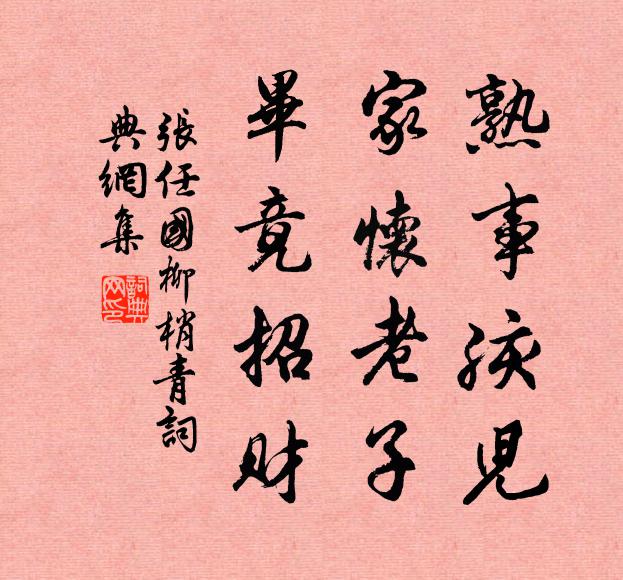 熟事孩兒
家懷老子
畢竟招財
張任國柳梢青詞
典網集
詞典網印